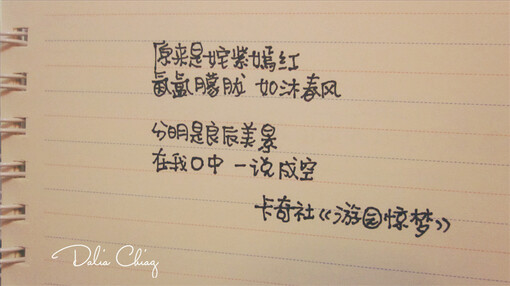 原来是姹紫嫣红
氤氲朦胧 如沐春风
分明是良辰美景
在我口中 一说成空
卡奇社《游园惊梦》
Dalia Chiaq